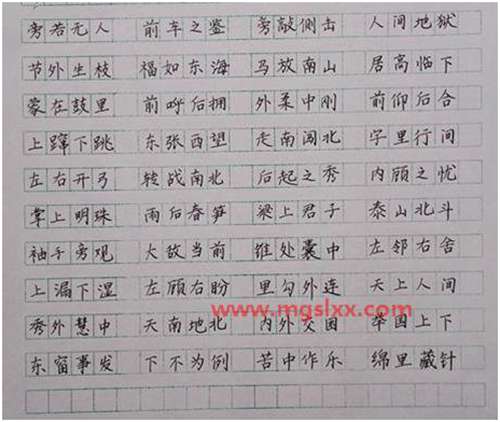 旁若无人 前车之鉴 旁敲侧击 人间地狱
节外生枝 福如东海 马放南山 居高临下
蒙在鼓里 前呼后拥 外柔中刚 前仰后合
上蹿下跳 东张西望 走南闯北 字里行间
左右开弓 转战南北 后起之秀 内顾之忧
掌上明珠 雨后春笋 梁上君子 泰山北斗
袖手旁观 大敌当前 锥处囊中 左邻右舍
上漏下湿 左顾右盼 里勾外连 天上人间
www.mgslxx.com
秀外慧中 天南地北 内外交困 举国上下
东窗事发 下不为例 苦中作乐 绵里藏针